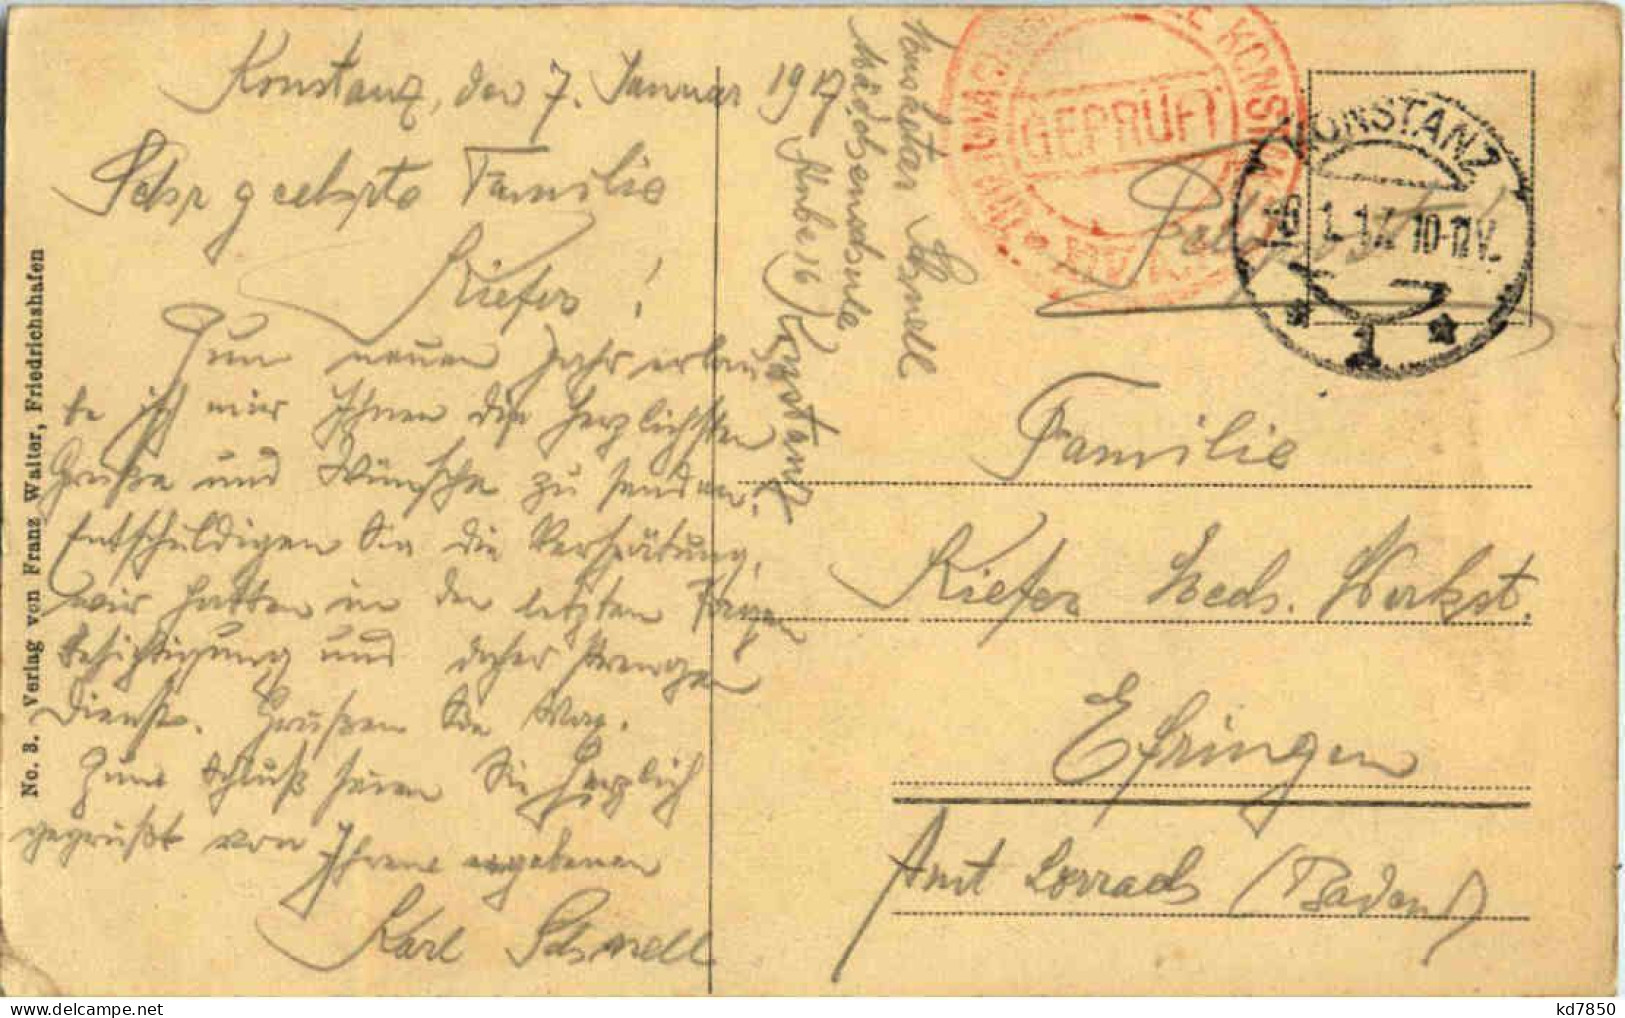 Konstanz, den 7. Januar 1917
Sehr geehrte Familie
Kiefer!
Zum neuen Jahr erlau
be ich mir Ihnen die herzlichsten
Grüße und Wünsche zu senden.
Entschuldigen Sie die Verspätung,
wir hatten in den letzten Tagen
Besichtigung und daher strengen
Dienst. Grüßen Sie Max.
Zum Schluß seien Sie herzlich
gegrüßt von Ihrem ergebenen
Karl Schnell
Musketar Schnell
Mädchenschule
Stube 16 Konstanz
GEPRÜFT
KONSTANZ
1.17 10-12V.
1
Familie
Kiefer Mech. Werkst.
Efringen
Amt Lörrach (Baden)
No. 3. Verlag von Franz Walter, Friedrichshafen
kd7850